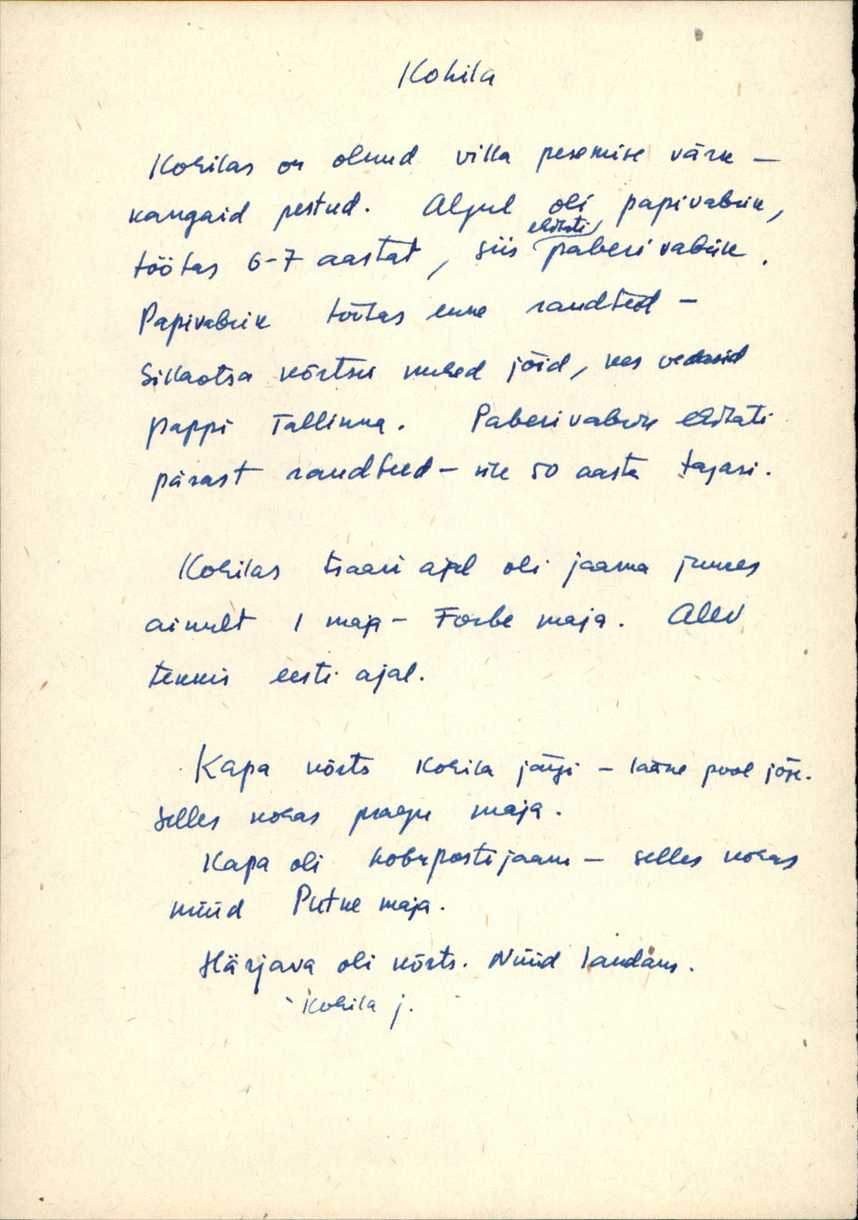 Kohila
Kohilas on olnud villa pesemise värk –
kangaid pestud. Algul oli papivabrik,
töötas 6-7 aastat, siis ehitati paberivabrik.
Papivabrik töötas enne raudteed –
Sikaotsa kõrtsis mehed jõid, kes vedasid
pappi Tallinna. Paberivabrik ehitati
pärast raudteed – üle 50 aasta tagasi.
Kohilas tsaari ajal oli jaama juures
ainult 1 maja – Forbe maja. Alev
tekkis eesti ajal.
Kapa kõrts Kohila järgi – lääne pool jõge.
Selles kohas praegu maja.
Kapa oli hobupostijaam – selles kohas
nüüd Putne maja.
Härjava oli kõrts. Nüüd laudaus.
Kohila j.